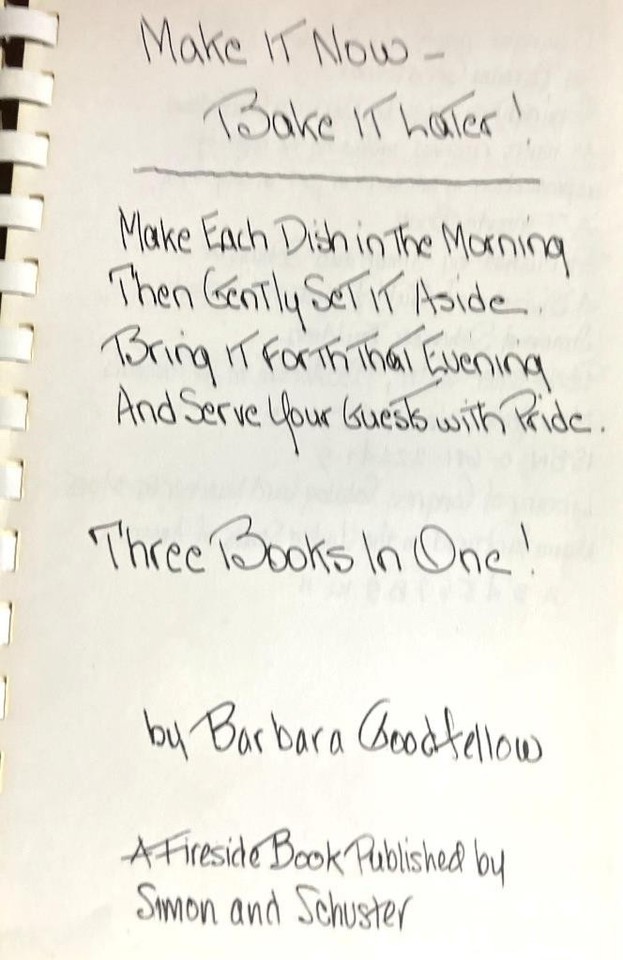 Make It Now –
Bake It Later!
Make Each Dish in The Morning
Then Gently Set It Aside
Bring It Forth That Evening
And Serve Your Guests with Pride.
Three Books In One!
by Barbara Goodfellow
A Fireside Book Published by
Simon and Schuster